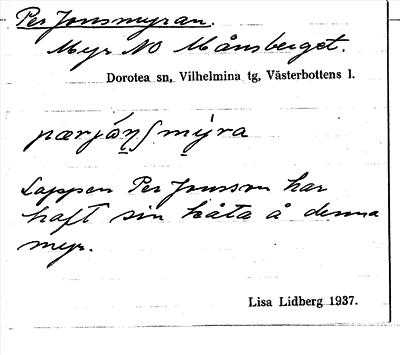 Per Jonsmyran.
Myr NO Månsberget.
Dorotea sn, Vilhelmina tg, Västerbottens l.
pærjón̥ʃmýra
Lappen Per Jonsson har
haft sin kåta å denna
myr.
Lisa Lidberg 1937.